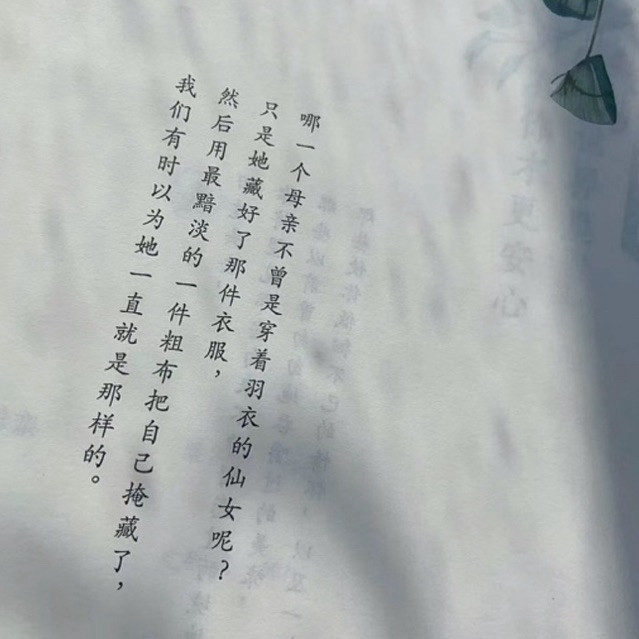 哪一个母亲不曾是穿着羽衣的仙女呢？
只是她藏好了那件衣服，
然后用最黯淡的一件粗布把自己掩藏了，
我们有时以为她一直就是那样的。
更安心